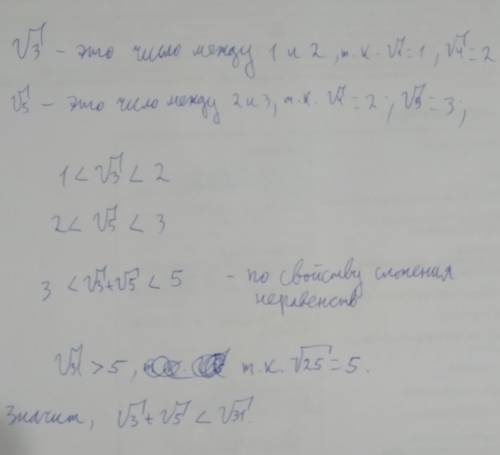 √3 – это число между 1 и 2, т.к. √1=1, √4=2
√5 – это число между 2 и 3, т.к. √4=2, √9=3,
1 < √3 < 2
2 < √5 < 3
3 < √3+√5 < 5 – по свойству сложения
неравенств
√31 > 5, т.к. √25 = 5.
Значит, √3 + √5 < √31.